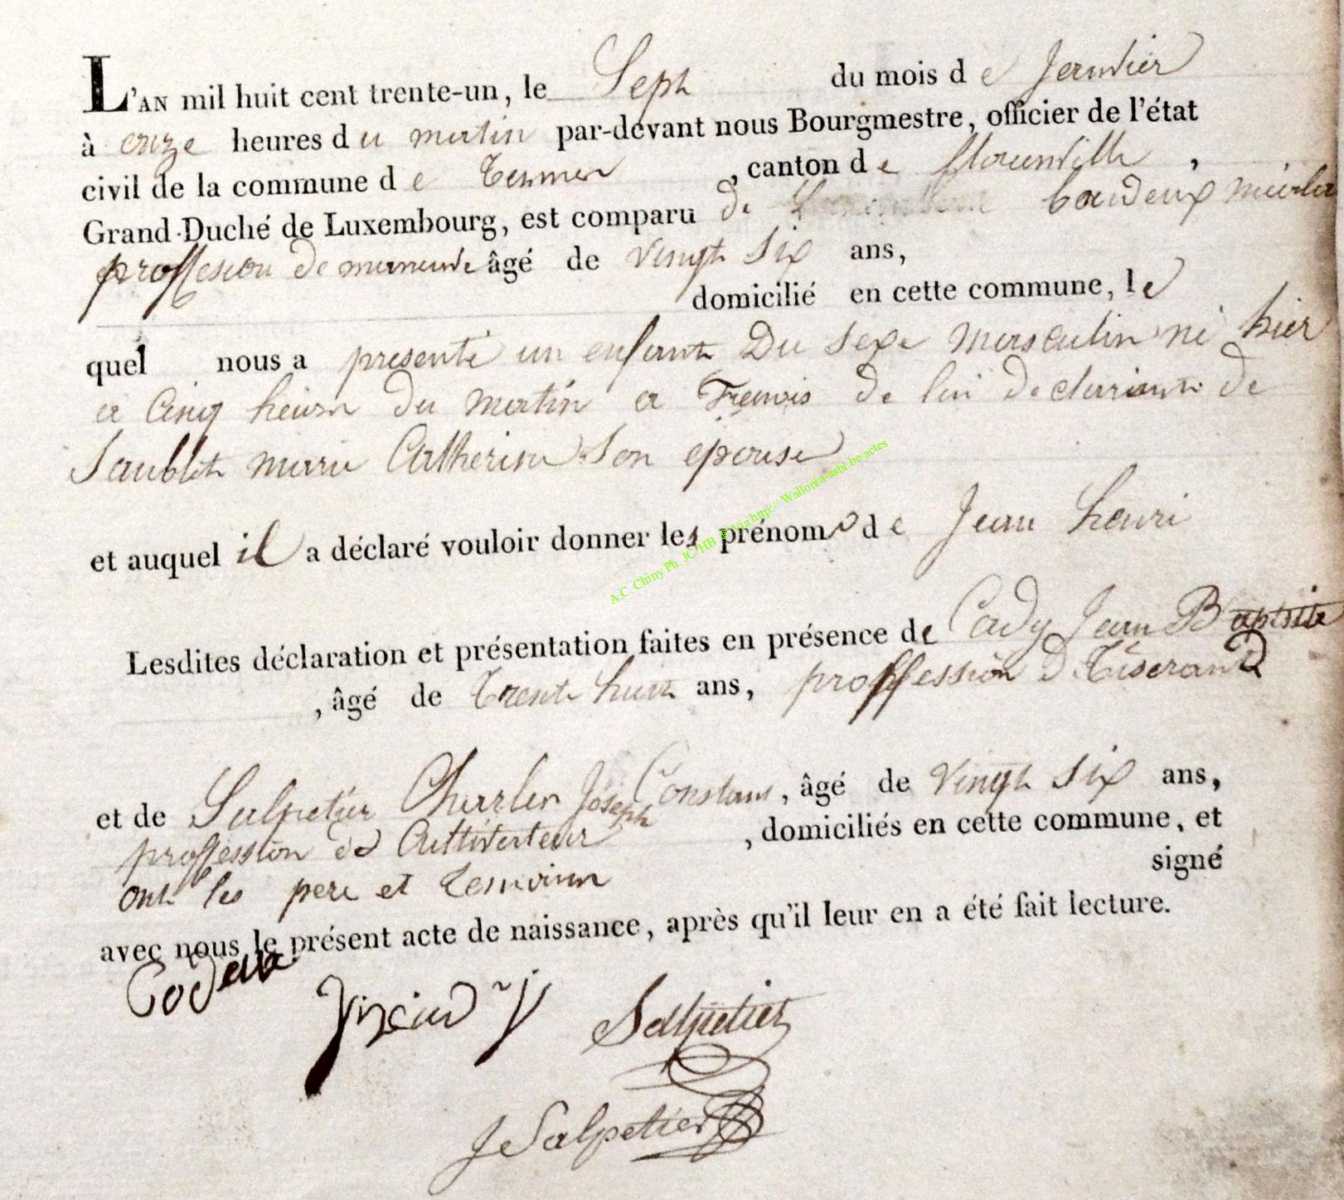 L'AN mil huit cent trente-un, le Seph du mois de Jeanvier
à onze heures du matin par-devant nous Bourgmestre, officier de l'état
civil de la commune de Termes, canton de florenville,
Grand-Duché de Luxembourg, est comparu de
proffesion de âgé de vingt six ans,
domicilié en cette commune, le
quel nous a presenté un enfant Du sexe masculin né hier
a Cinq heures du matin a de lui declarant de
marie Catherine son épouse
et auquel il a déclaré vouloir donner les prénoms de Jean henri
Lesdites déclaration et présentation faites en présence de Cady Jean Baptiste
, âgé de trente huit ans, proffession De Tiserand
et de Salpetier Charles Joseph Constans, âgé de vingt six ans,
proffession de Cultivateur, domiciliés en cette commune, et
ont les pere et temoins signé
avec nous le présent acte de naissance, après qu'il leur en a été fait lecture.
Salpetier
J Salpetier